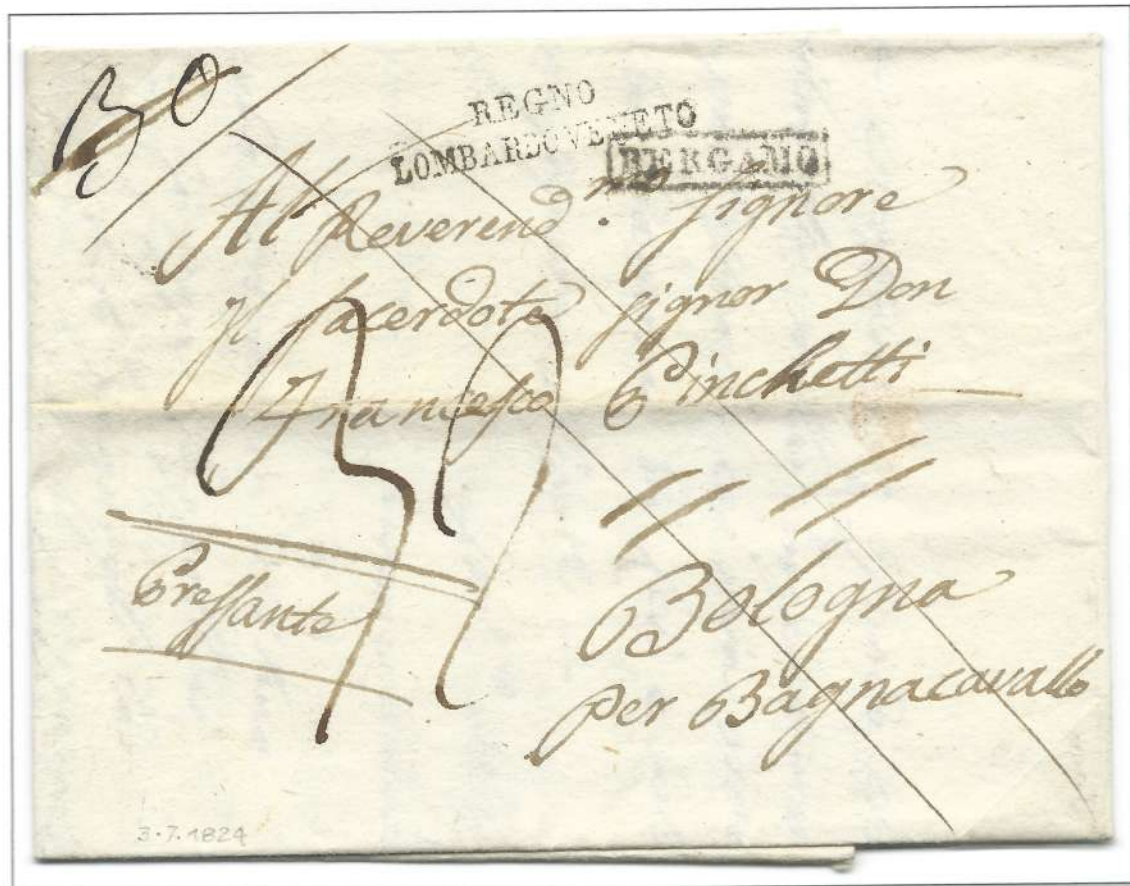 30
REGNO
LOMBARDO VENETO
BERGAMO
Al Reverendmo signore
Il sacerdote signor Don
Francesco Pinchetti
39
Pressante
Bologna
per Bagnacavallo
3.7.1824